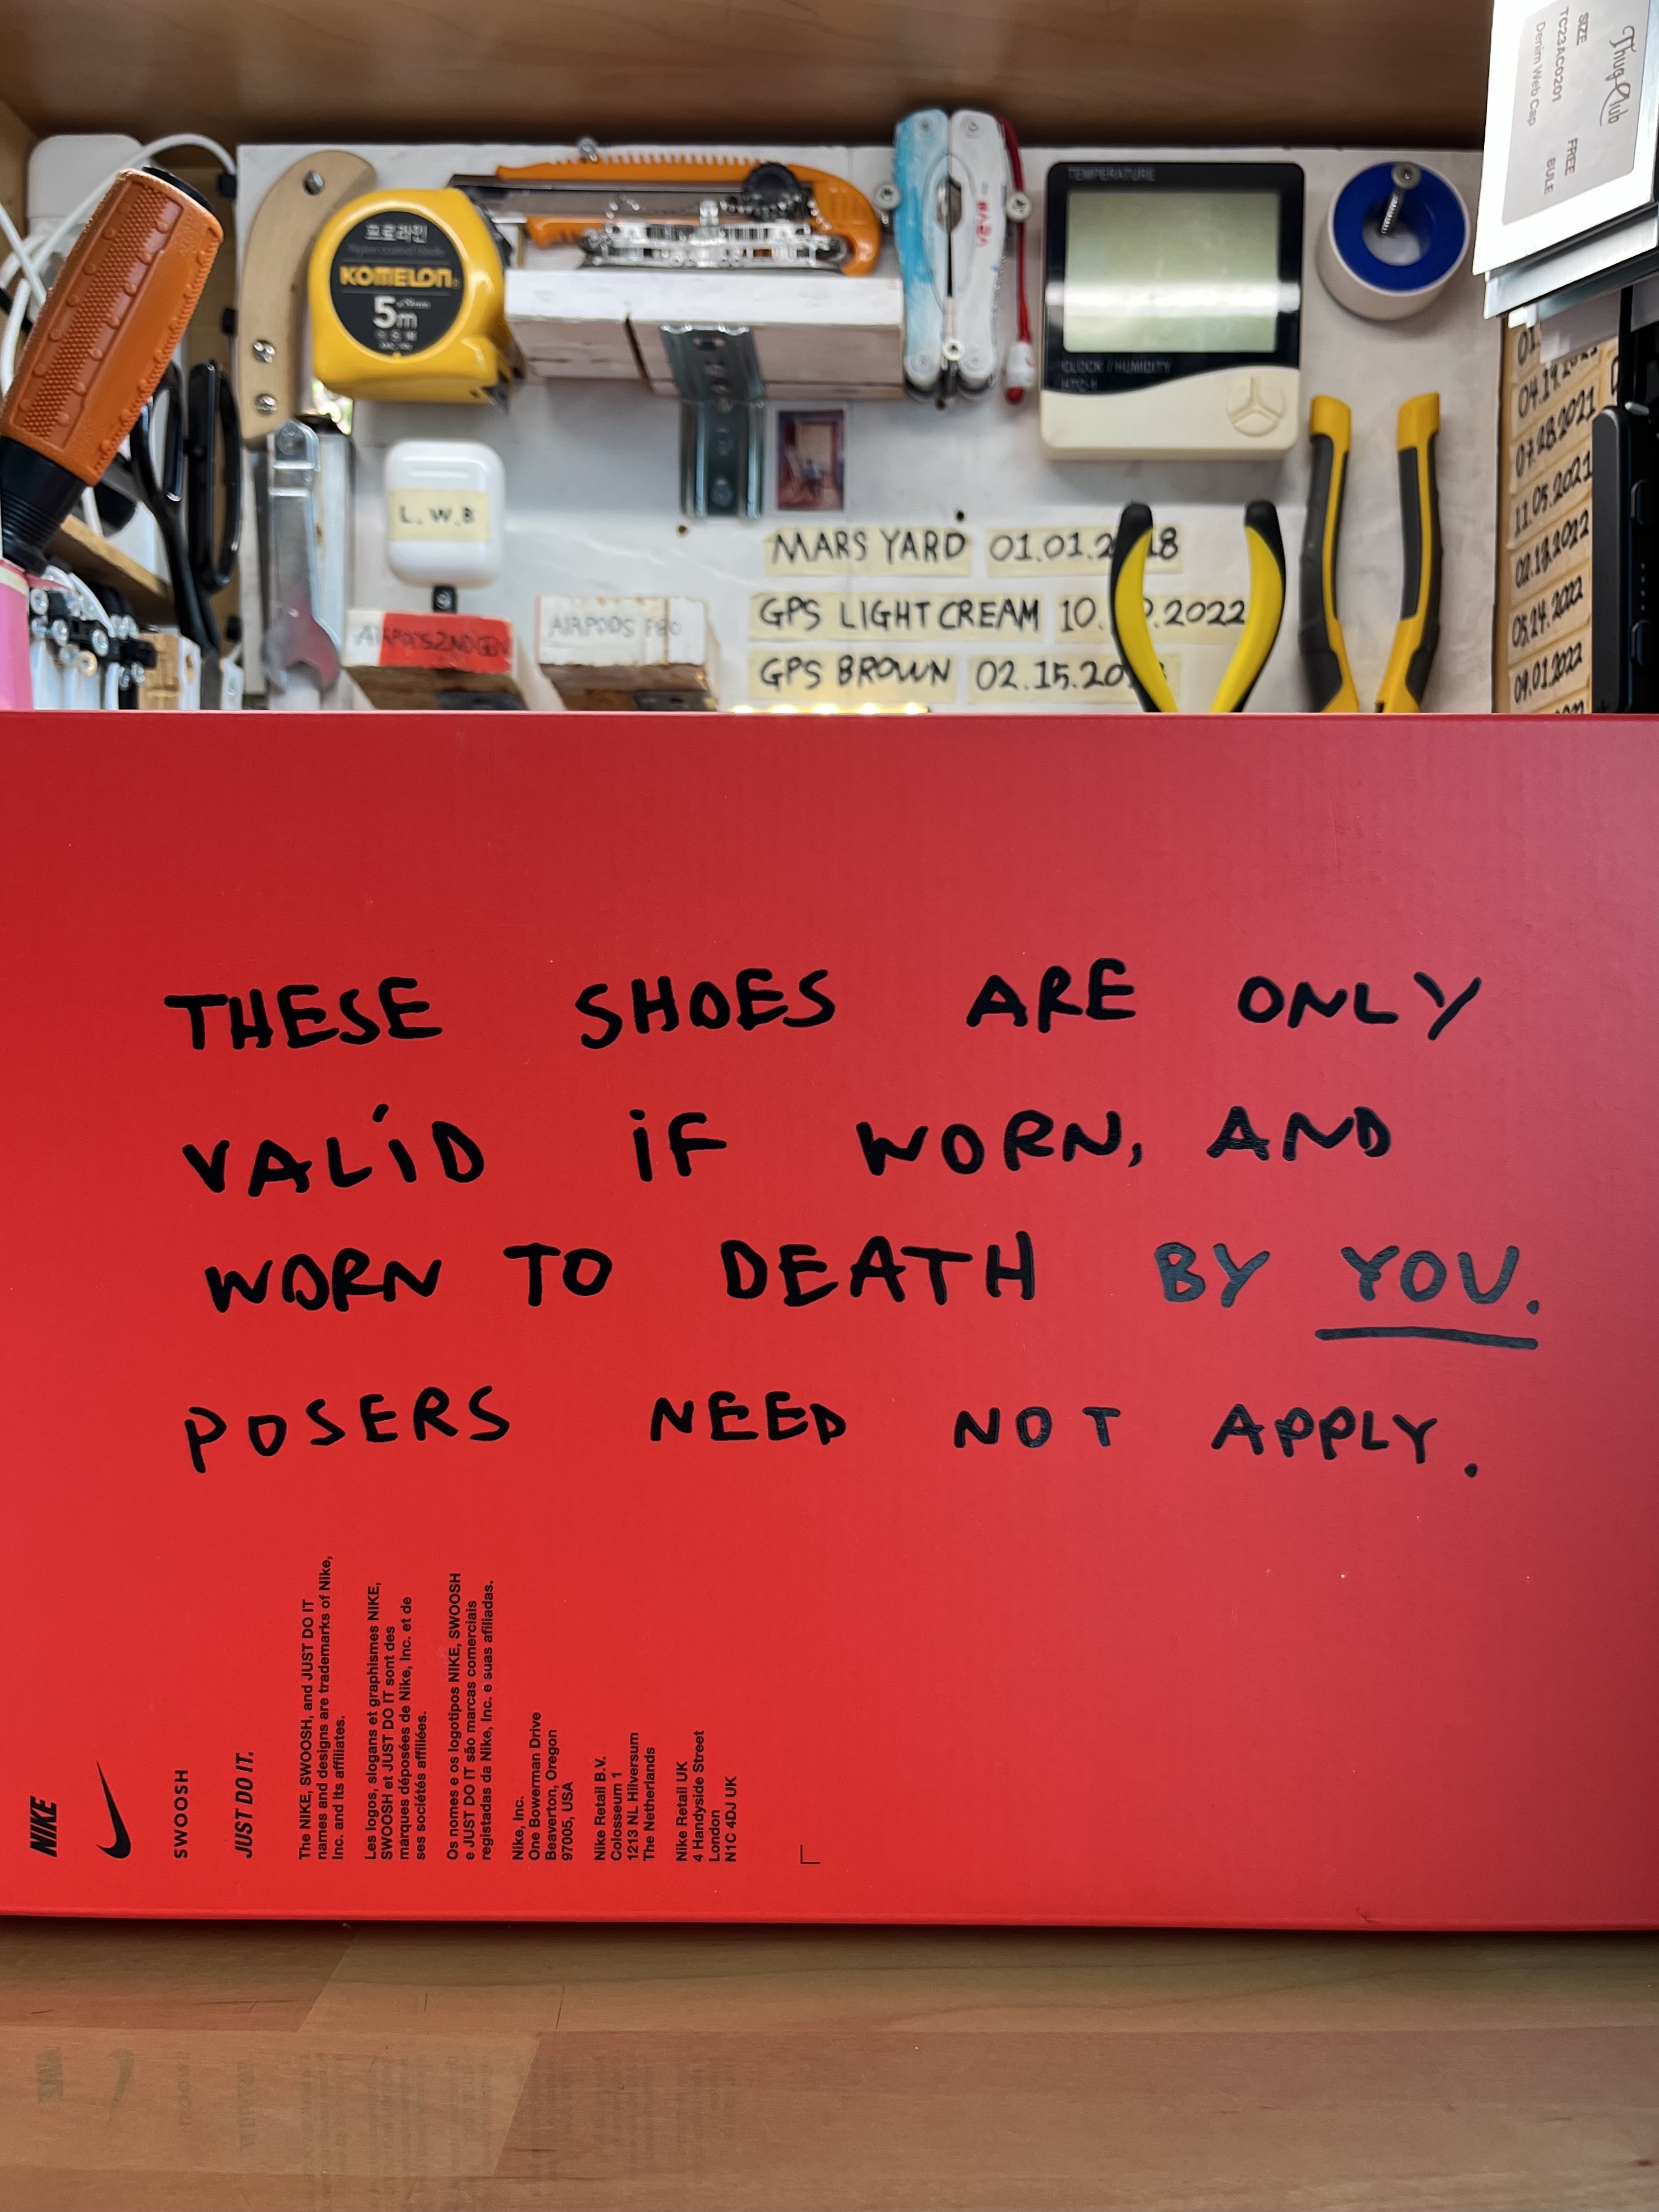 Thug Club
SIZE FREE
TC23AC0201 BULE
Denim Web Cap
TEMPERATURE
CLOCK / HUMIDITY
HTC-1
프로라인
KOMELON
5m
L.W.B
AIRPODS 2ND GEN
AIRPODS PRO
MARS YARD 01.01.2 18
GPS LIGHT CREAM 10. .2022
GPS BROWN 02.15.20
01.
04.19.2021
07.28.2021
11.05.2021
02.13.2022
05.24.2022
09.01.2022
THESE SHOES ARE ONLY
VALiD iF WORN, AND
WORN TO DEATH BY YOU.
POSERS NEED NOT APPLY.
NIKE
SWOOSH
JUST DO IT.
The NIKE, SWOOSH, and JUST DO IT
names and designs are trademarks of Nike,
Inc. and its affiliates.
Les logos, slogans et graphismes NIKE,
SWOOSH et JUST DO IT sont des
marques déposées de Nike, Inc. et de
ses sociétés affiliées.
Os nomes e os logotipos NIKE, SWOOSH
e JUST DO IT são marcas comerciais
registadas da Nike, Inc. e suas afiliadas.
Nike, Inc.
One Bowerman Drive
Beaverton, Oregon
97005, USA
Nike Retail B.V.
Colosseum 1
1213 NL Hilversum
The Netherlands
Nike Retail UK
4 Handyside Street
London
N1C 4DJ UK